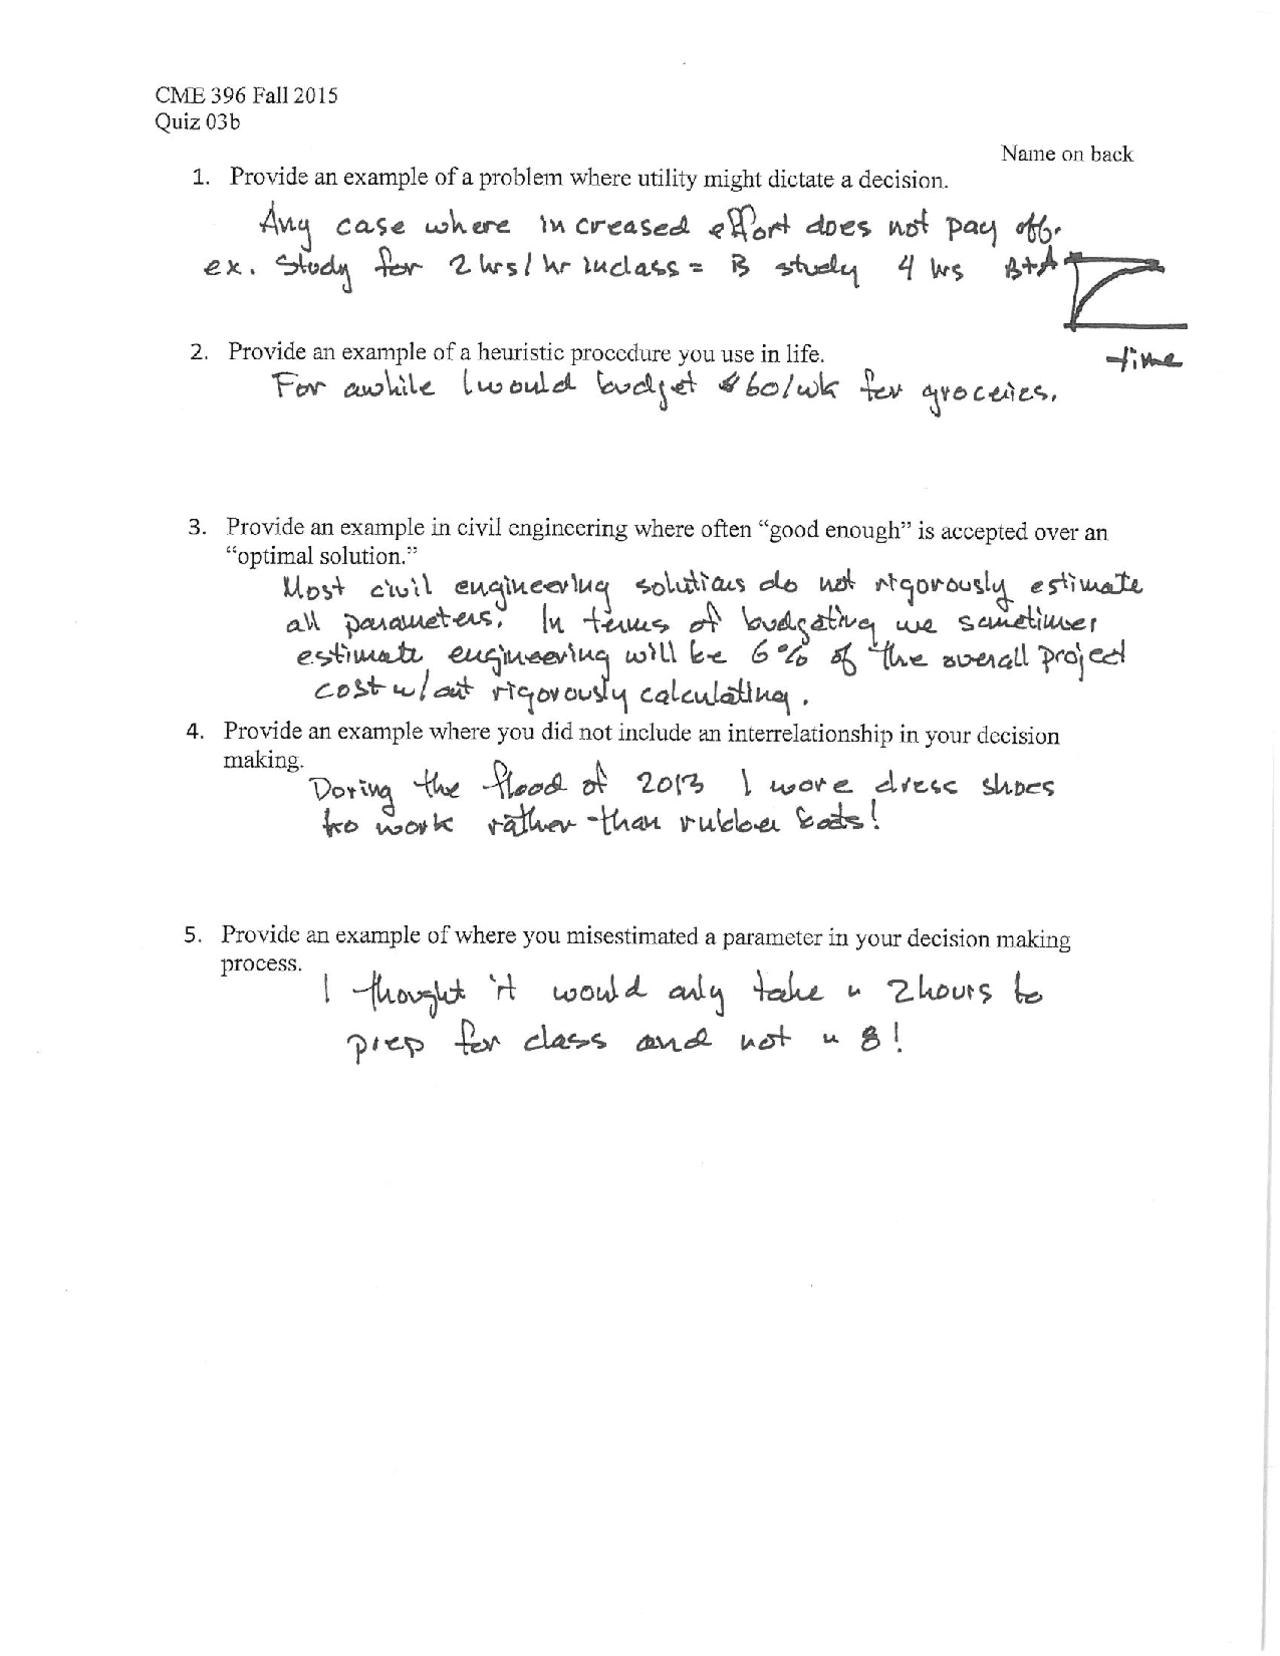 CME 396 Fall 2015
Quiz 03b
Name on back
1. Provide an example of a problem where utility might dictate a decision.
Any case where increased effort does not pay off.
ex. Study for 2 hrs / hr inclass = B study 4 hrs B+ A
time
2. Provide an example of a heuristic procedure you use in life.
For awhile I would budget $60/wk for groceries.
3. Provide an example in civil engineering where often “good enough” is accepted over an
“optimal solution.”
Most civil engineering solutions do not rigorously estimate
all parameters. In terms of budgeting we sometimes
estimate engineering will be 6% of the overall project
cost w/out rigorously calculating.
4. Provide an example where you did not include an interrelationship in your decision
making.
During the flood of 2013 I wore dress shoes
to work rather than rubber boots!
5. Provide an example of where you misestimated a parameter in your decision making
process.
I thought it would only take 2 hours to
prep for class and not 8!